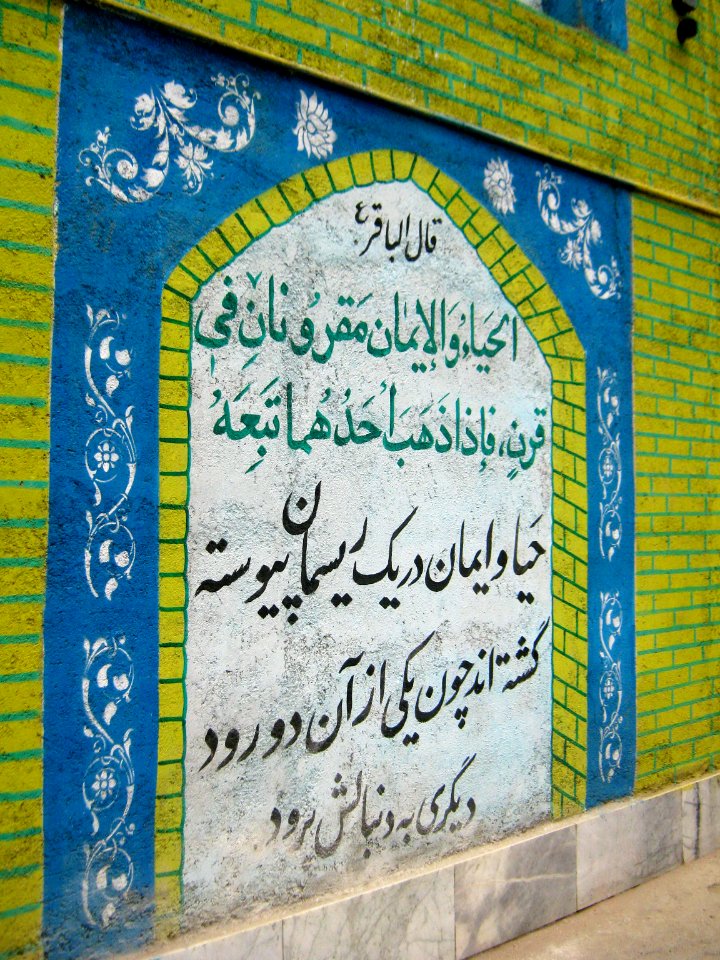 قال الباقر ع
الحَیاءُ وَالإیمان مَقرُونانِ فی
قرنٍ، فَإذا ذَهَبَ أحَدُهُما تَبِعَهُ
حَیا و ایمان در یک ریسمان پیوسته
گشته اند چون یکی از آن دو رود
دیگری به دنبالش برود